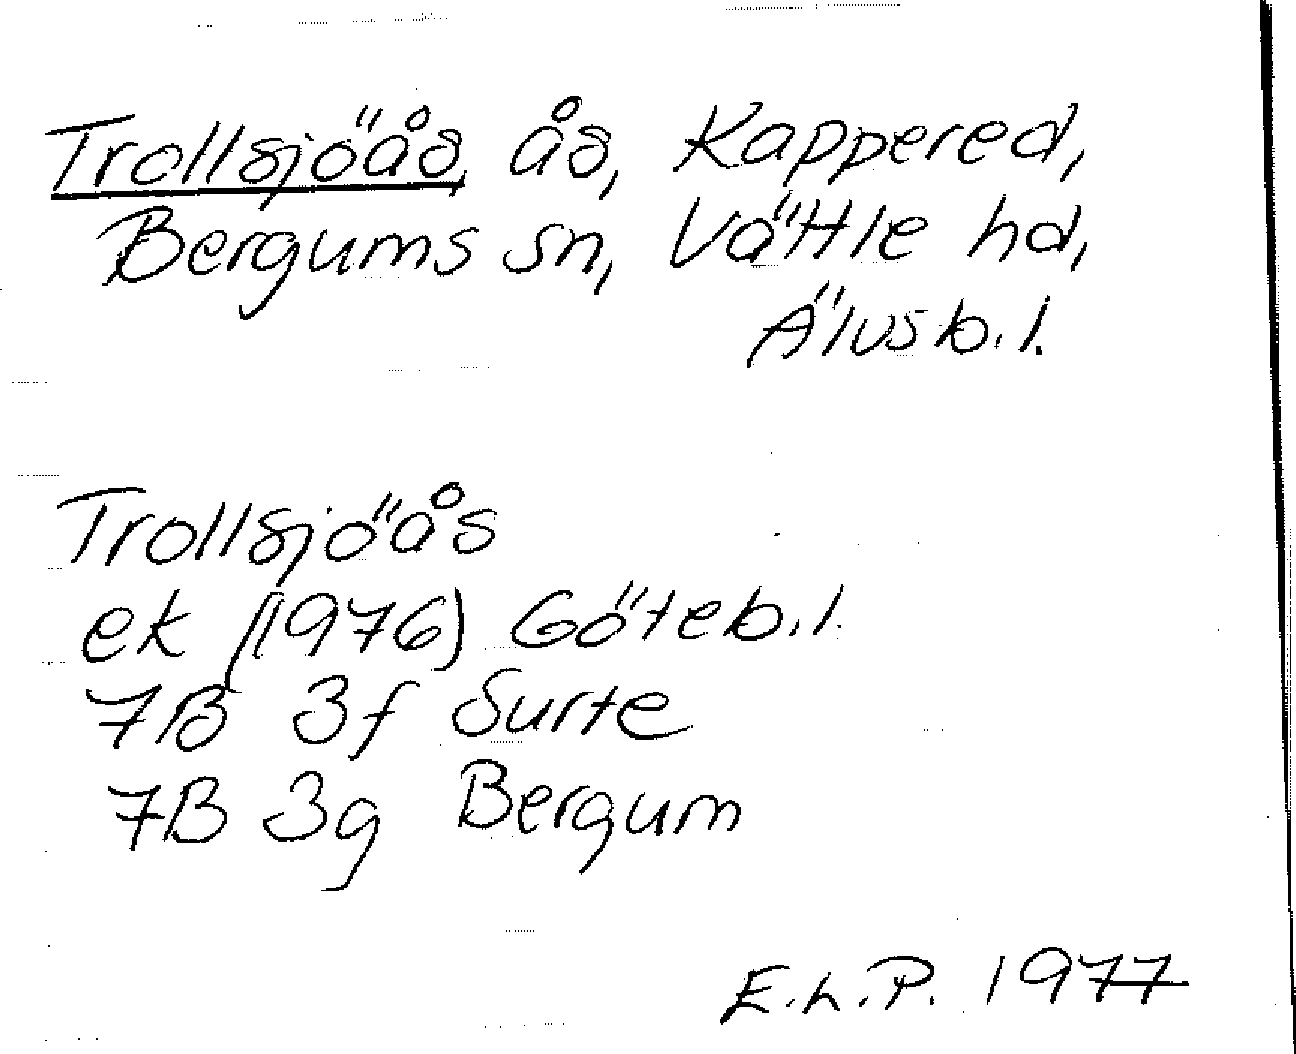 Trollsjöås, ås, Kappered,
Bergums sn, Vättle hd,
Älvsb.l.
Trollsjöås
ek (1976) Göteb.l.
7B 3f Surte
7B 3g Bergum
E.L.P. 1977